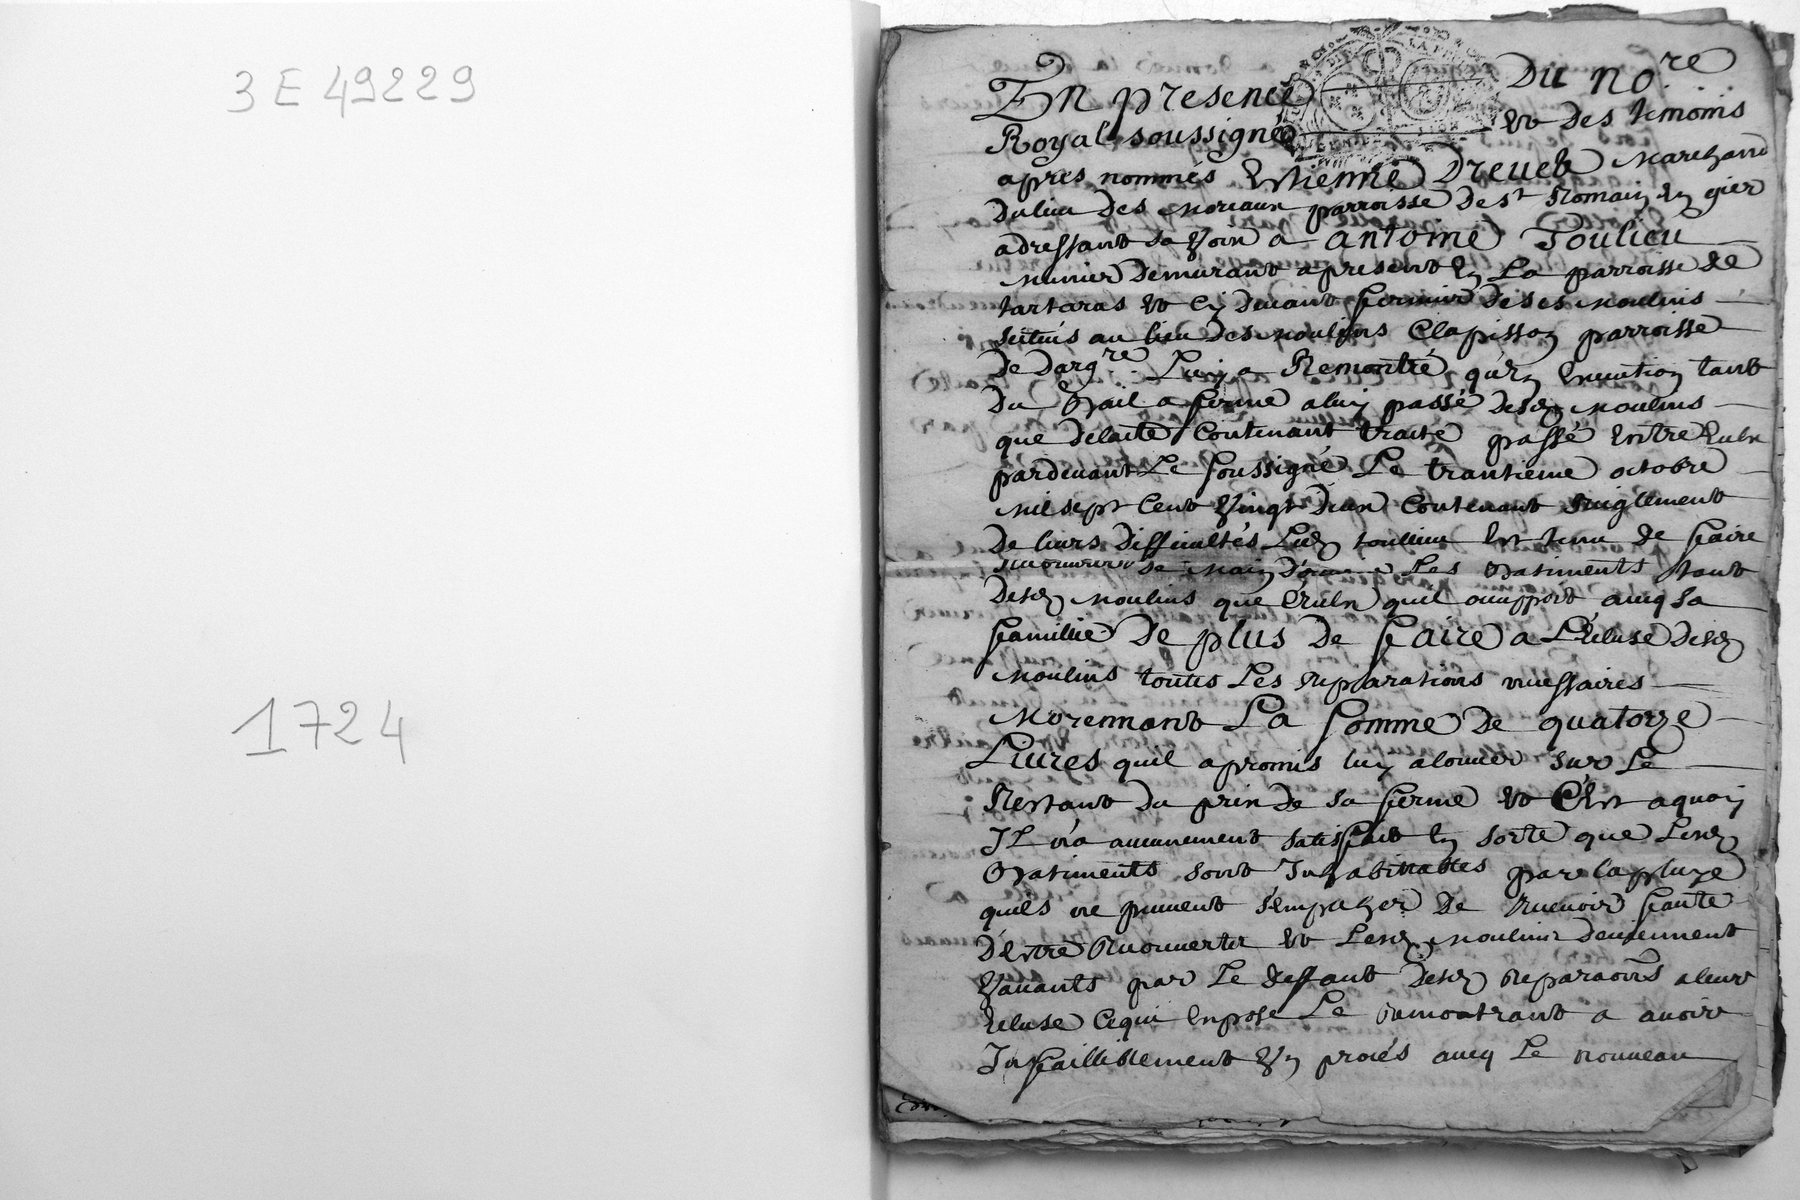 3 E 49229
1724
En presence Du no.re
Royal soussigné et des temoins
apres nommés Estienne Dreveh Marchand
du lieu des moriaux parroisse de st Romain en gier
adressant sa voix a antoine Toulieu
munier demurant apresent en La parroisse de
tartaras et cy devant fermier de ses moulins
scitués au lieu des moulins Clapisson parroisse
de darg.re Luy a Remontré qu'en execution tant
du bail a ferme a luy passé desd moulins
que de lacte Contenant traité passé entre eulx
pardevant Le soussigné Le trantieme octobre
mil sept Cent vingt deux Contenant reiglement
de leurs difficultés Led toullieu est tenu de faire
recouvrir de main d'œuvre Les batiments tant
desd moulins que Ceulx quil occuppoit avecq sa
famille De plus De faire a L'écluse desd
moulins toutes Les reparations necessaires
moyennant La somme De quatorze
Livres quil a promis luy alouuer sur Le
Restant du prix de sa ferme et C'est a quoy
Il n'a aucunement satisfait en sorte que Lesd
batiments sont Inhabittables par la pluye
quils ne peuvent s'empecher de recevoir faute
D'estre Recouverts et Lesd moulins deviennent
vacants par Le deffaut desd reparaons a leur
écluse Ce qui expose Le remontrant a avoir
Infailliblement un procés avecq Le nouveau